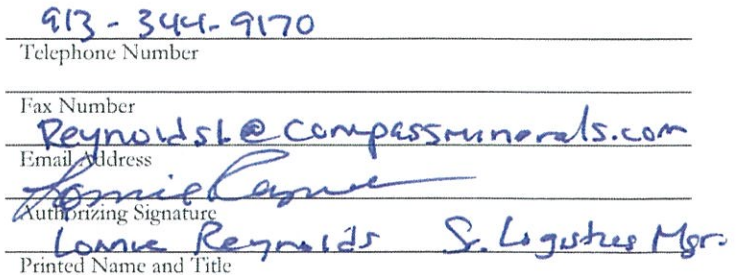 913-344-9170
Telephone Number
Fax Number
ReynoldsL@compassminerals.com
Email Address
Authorizing Signature
Lonnie Reynolds Sr. Logistics Mgr.
Printed Name and Title